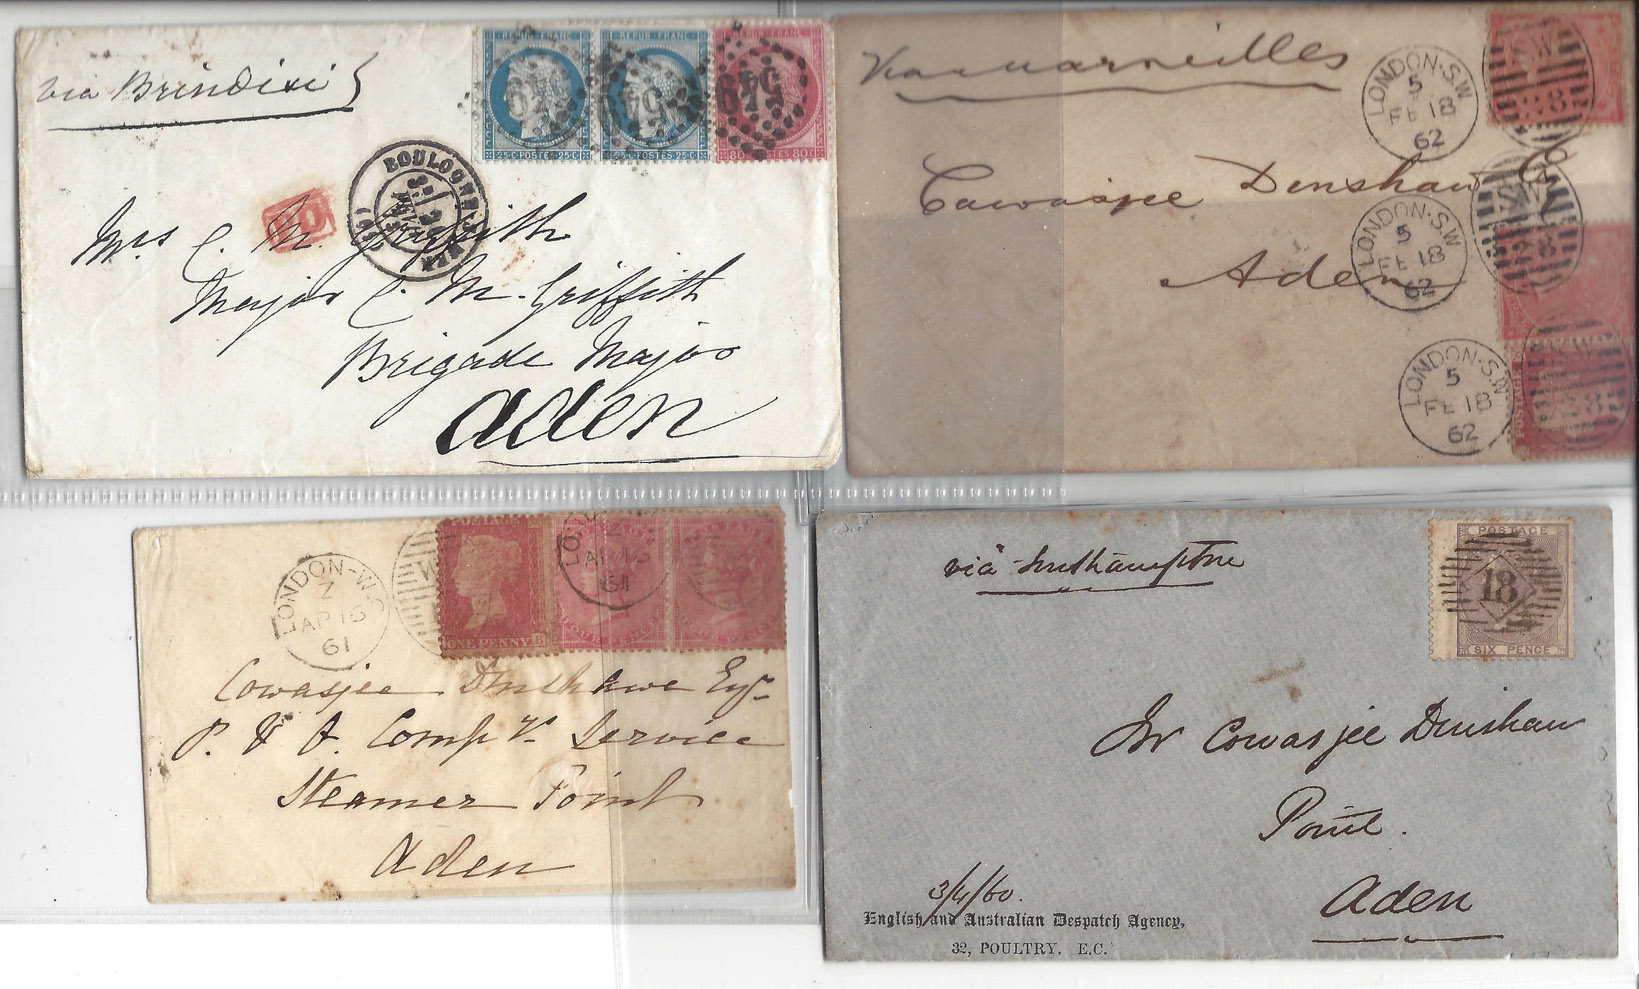 via Brindisi
REPUB·FRANC
REPUB·FRANC
REPUB·FRANC
25C·POSTES·25C
POSTES 25C
80C POSTES 80C
BOULOGNE
Mrs C. M. Griffith
Major C. M. Griffith
Brigade Major
Aden
Via Marseilles
LONDON·S.W
5
FE 18
62
Cawasjee Dinshaw
Aden
LONDON·S.W
5
FE 18
62
LONDON·S.W
5
FE 18
62
POSTAGE
LONDON-W.C
Z
AP 18
61
POSTAGE
ONE PENNY
LO
Z
AP 18
61
FOUR PENCE
Cowasjee Dinshawe Esqr
P. & O. Comp Service
Steamer Point
Aden
via Southampton
POSTAGE
18
SIX PENCE
Mr Cowasjee Dinshaw
Point.
Aden
3/4/60.
English and Australian Despatch Agency,
32, POULTRY. E.C.